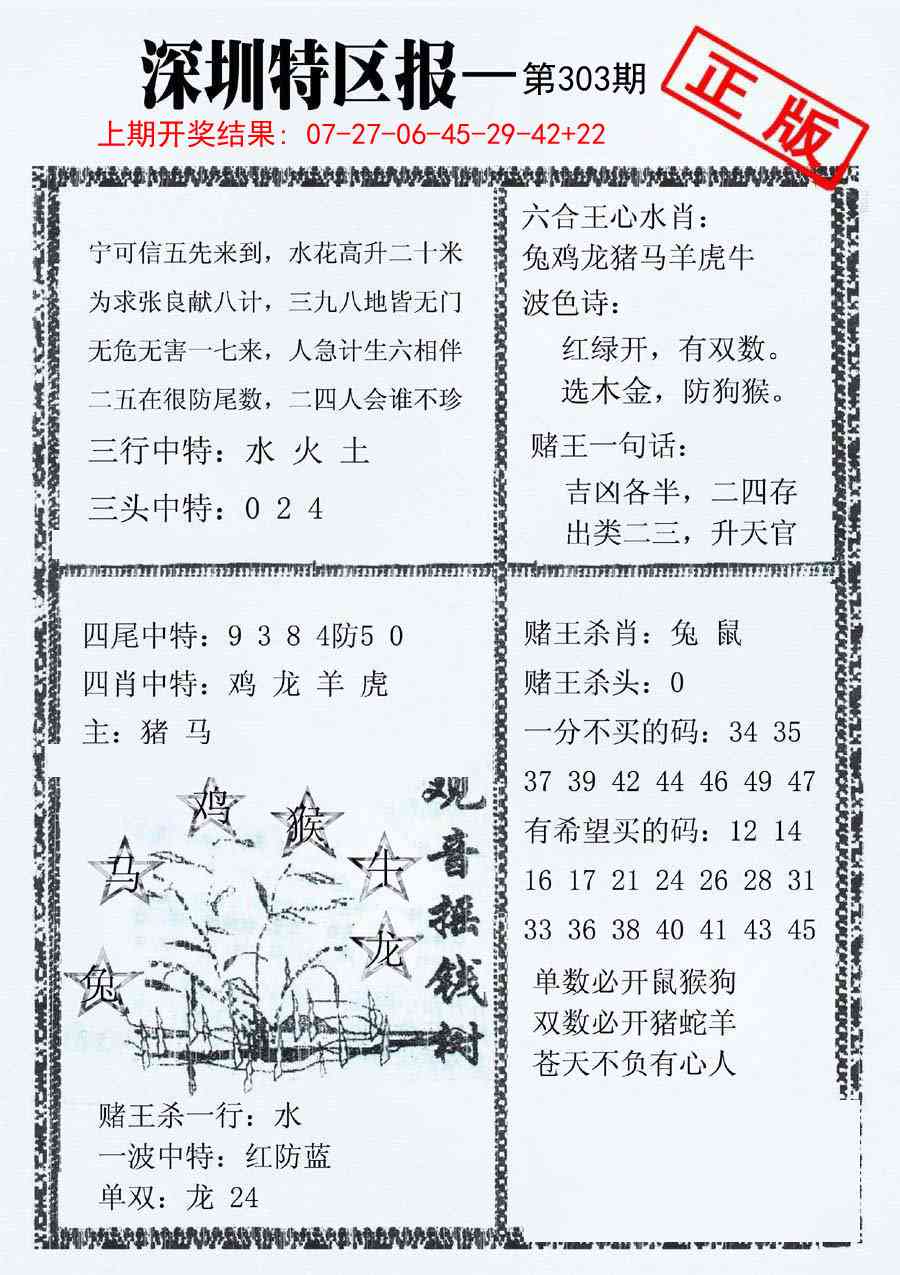 深圳特区报—第303期
正版
上期开奖结果：07-27-06-45-29-42+22
宁可信五先来到，水花高升二十米
为求张良献八计，三九八地皆无门
无危无害一七来，人急计生六相伴
二五在很防尾数，二四人会谁不珍
三行中特：水 火 土
三头中特：0 2 4
六合王心水肖：
兔鸡龙猪马羊虎牛
波色诗：
红绿开，有双数。
选木金，防狗猴。
赌王一句话：
吉凶各半，二四存
出类二三，升天官
四尾中特：9 3 8 4防5 0
四肖中特：鸡 龙 羊 虎
主：猪 马
鸡
猴
马
牛
龙
兔
观音摇钱树
赌王杀一行：水
一波中特：红防蓝
单双：龙 24
赌王杀肖：兔 鼠
赌王杀头：0
一分不买的码：34 35
37 39 42 44 46 49 47
有希望买的码：12 14
16 17 21 24 26 28 31
33 36 38 40 41 43 45
单数必开鼠猴狗
双数必开猪蛇羊
苍天不负有心人